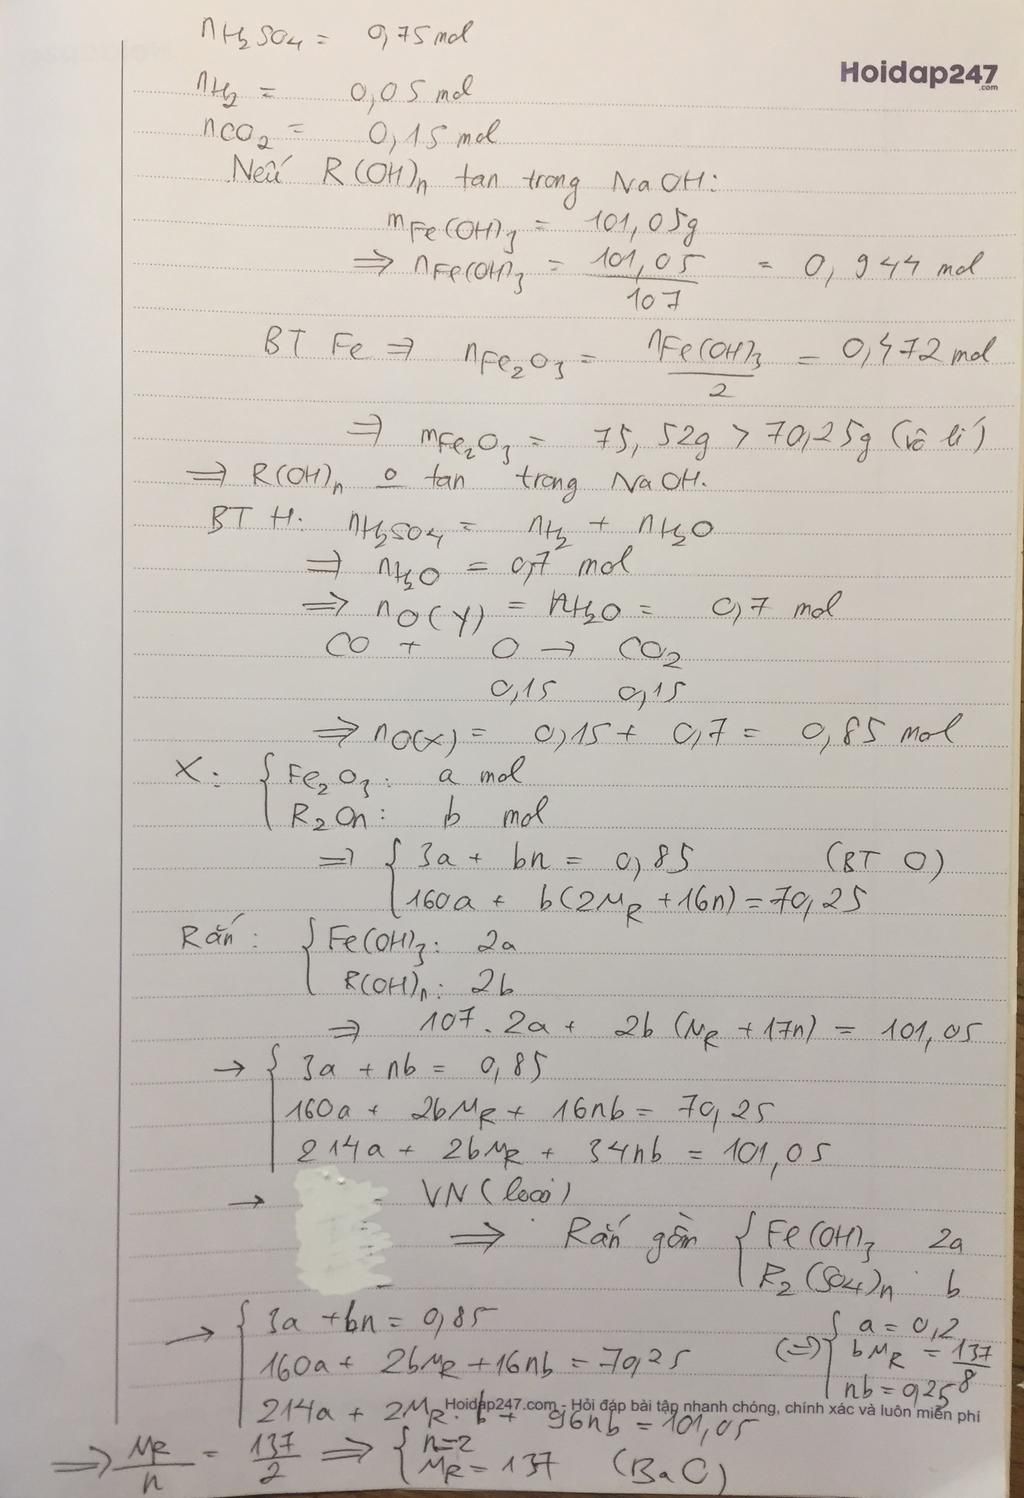 nH2SO4 = 0,75 mol
Hoidap247
.com
nH2 = 0,05 mol
nCO2 = 0,15 mol
Nếu R(OH)n tan trong NaOH:
mFe(OH)3 = 101,05g
=> nFe(OH)3 = 101,05/107 = 0,944 mol
BT Fe => nFe2O3 = nFe(OH)3/2 = 0,472 mol
=> mFe2O3 = 75,52g > 70,25g (vô lí)
=> R(OH)n o tan trong NaOH.
BT H. nH2SO4 = nH2 + nH2O
=> nH2O = 0,7 mol
=> nO(Y) = nH2O = 0,7 mol
CO + O → CO2
0,15 0,15
=> nO(X) = 0,15 + 0,7 = 0,85 mol
X: { Fe2O3: a mol
R2On: b mol
=> { 3a + bn = 0,85 (BT O)
160a + b(2MR + 16n) = 70,25
Rắn: { Fe(OH)3: 2a
R(OH)n: 2b
=> 107.2a + 2b (MR + 17n) = 101,05
→ { 3a + nb = 0,85
160a + 2bMR + 16nb = 70,25
214a + 2bMR + 34nb = 101,05
→ VN (loại)
=> Rắn gồm { Fe(OH)3 2a
R2(SO4)n: b
→ { 3a + bn = 0,85
160a + 2bMR + 16nb = 70,25
214a + 2MR.b + 96nb = 101,05
(=>) { a = 0,2
bMR = 137/8
nb = 0,25
Hoidap247.com - Hỏi đáp bài tập nhanh chóng, chính xác và luôn miễn phí
=> MR/n = 137/2 => { n=2
MR = 137 (BaO)